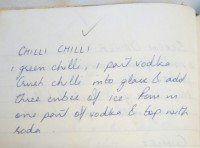 CHILLI CHILLI
1 green chilli, 1 part vodka
Crush chilli into glass & add
three cubes of ice. Pour in
one part of vodka & top with
soda.